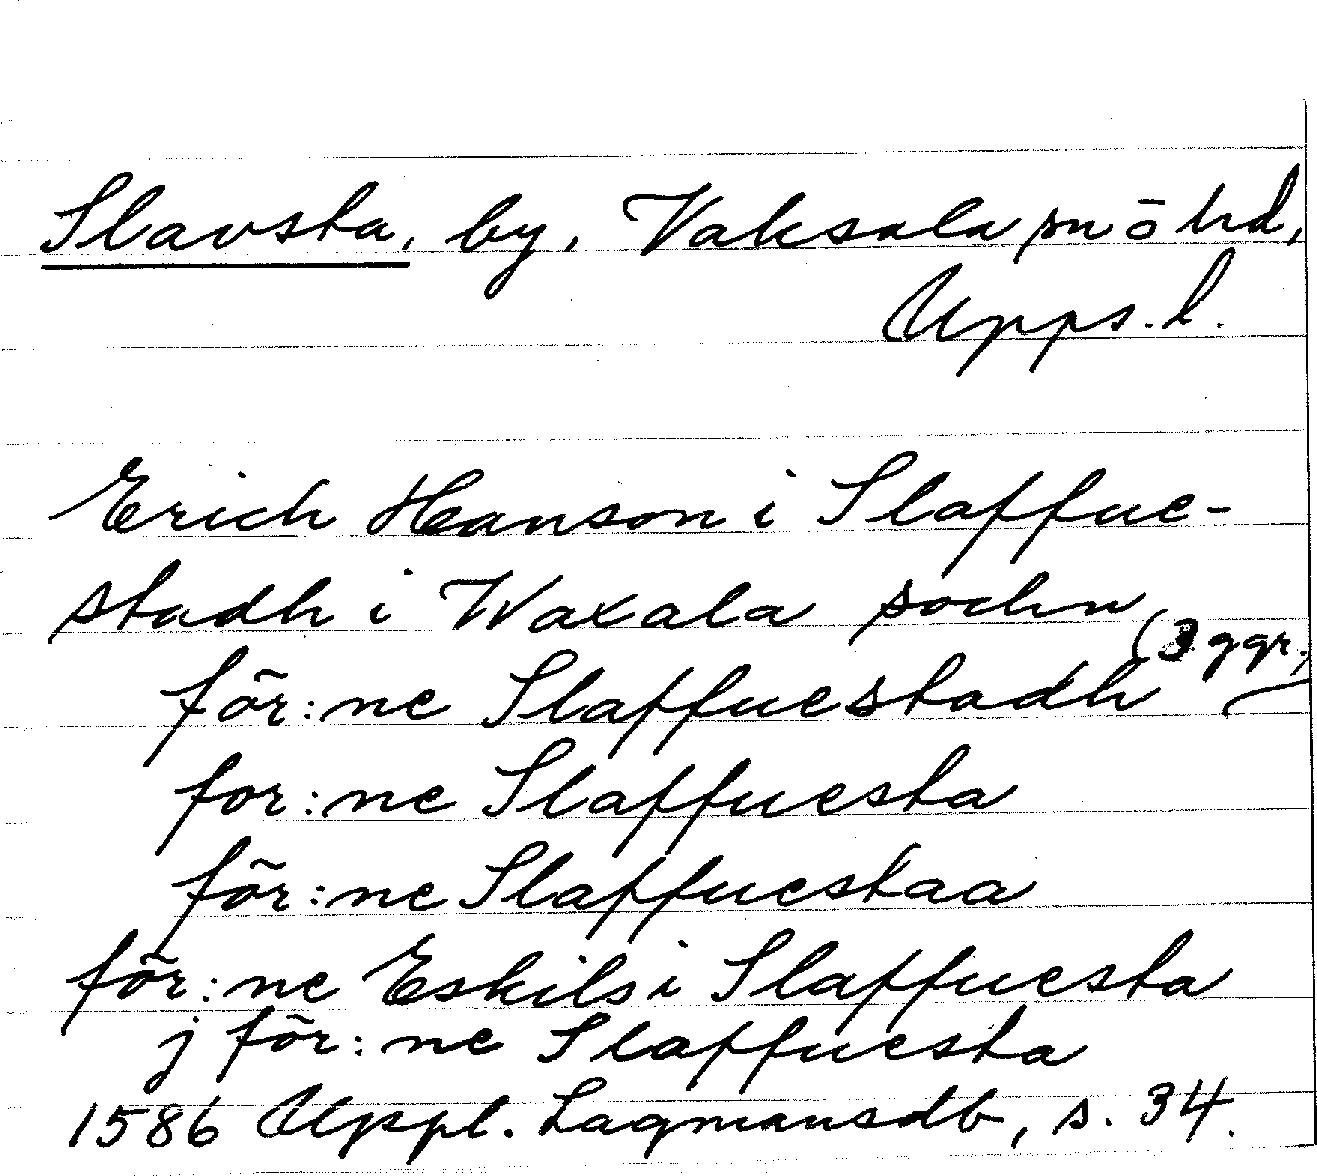 Slavsta, by, Vaksala sn ō hd,
Upps. l.
Erich Hanson i Slaffue-
stadh i Waxala sochn,
(3 ggr.)
för:ne Slaffuestadh
for:ne Slaffuesta
för:ne Slaffuestaa
för:ne Eskils i Slaffuesta
j för:ne Slaffuesta
1586 Uppl. Lagmansdb, s. 34.